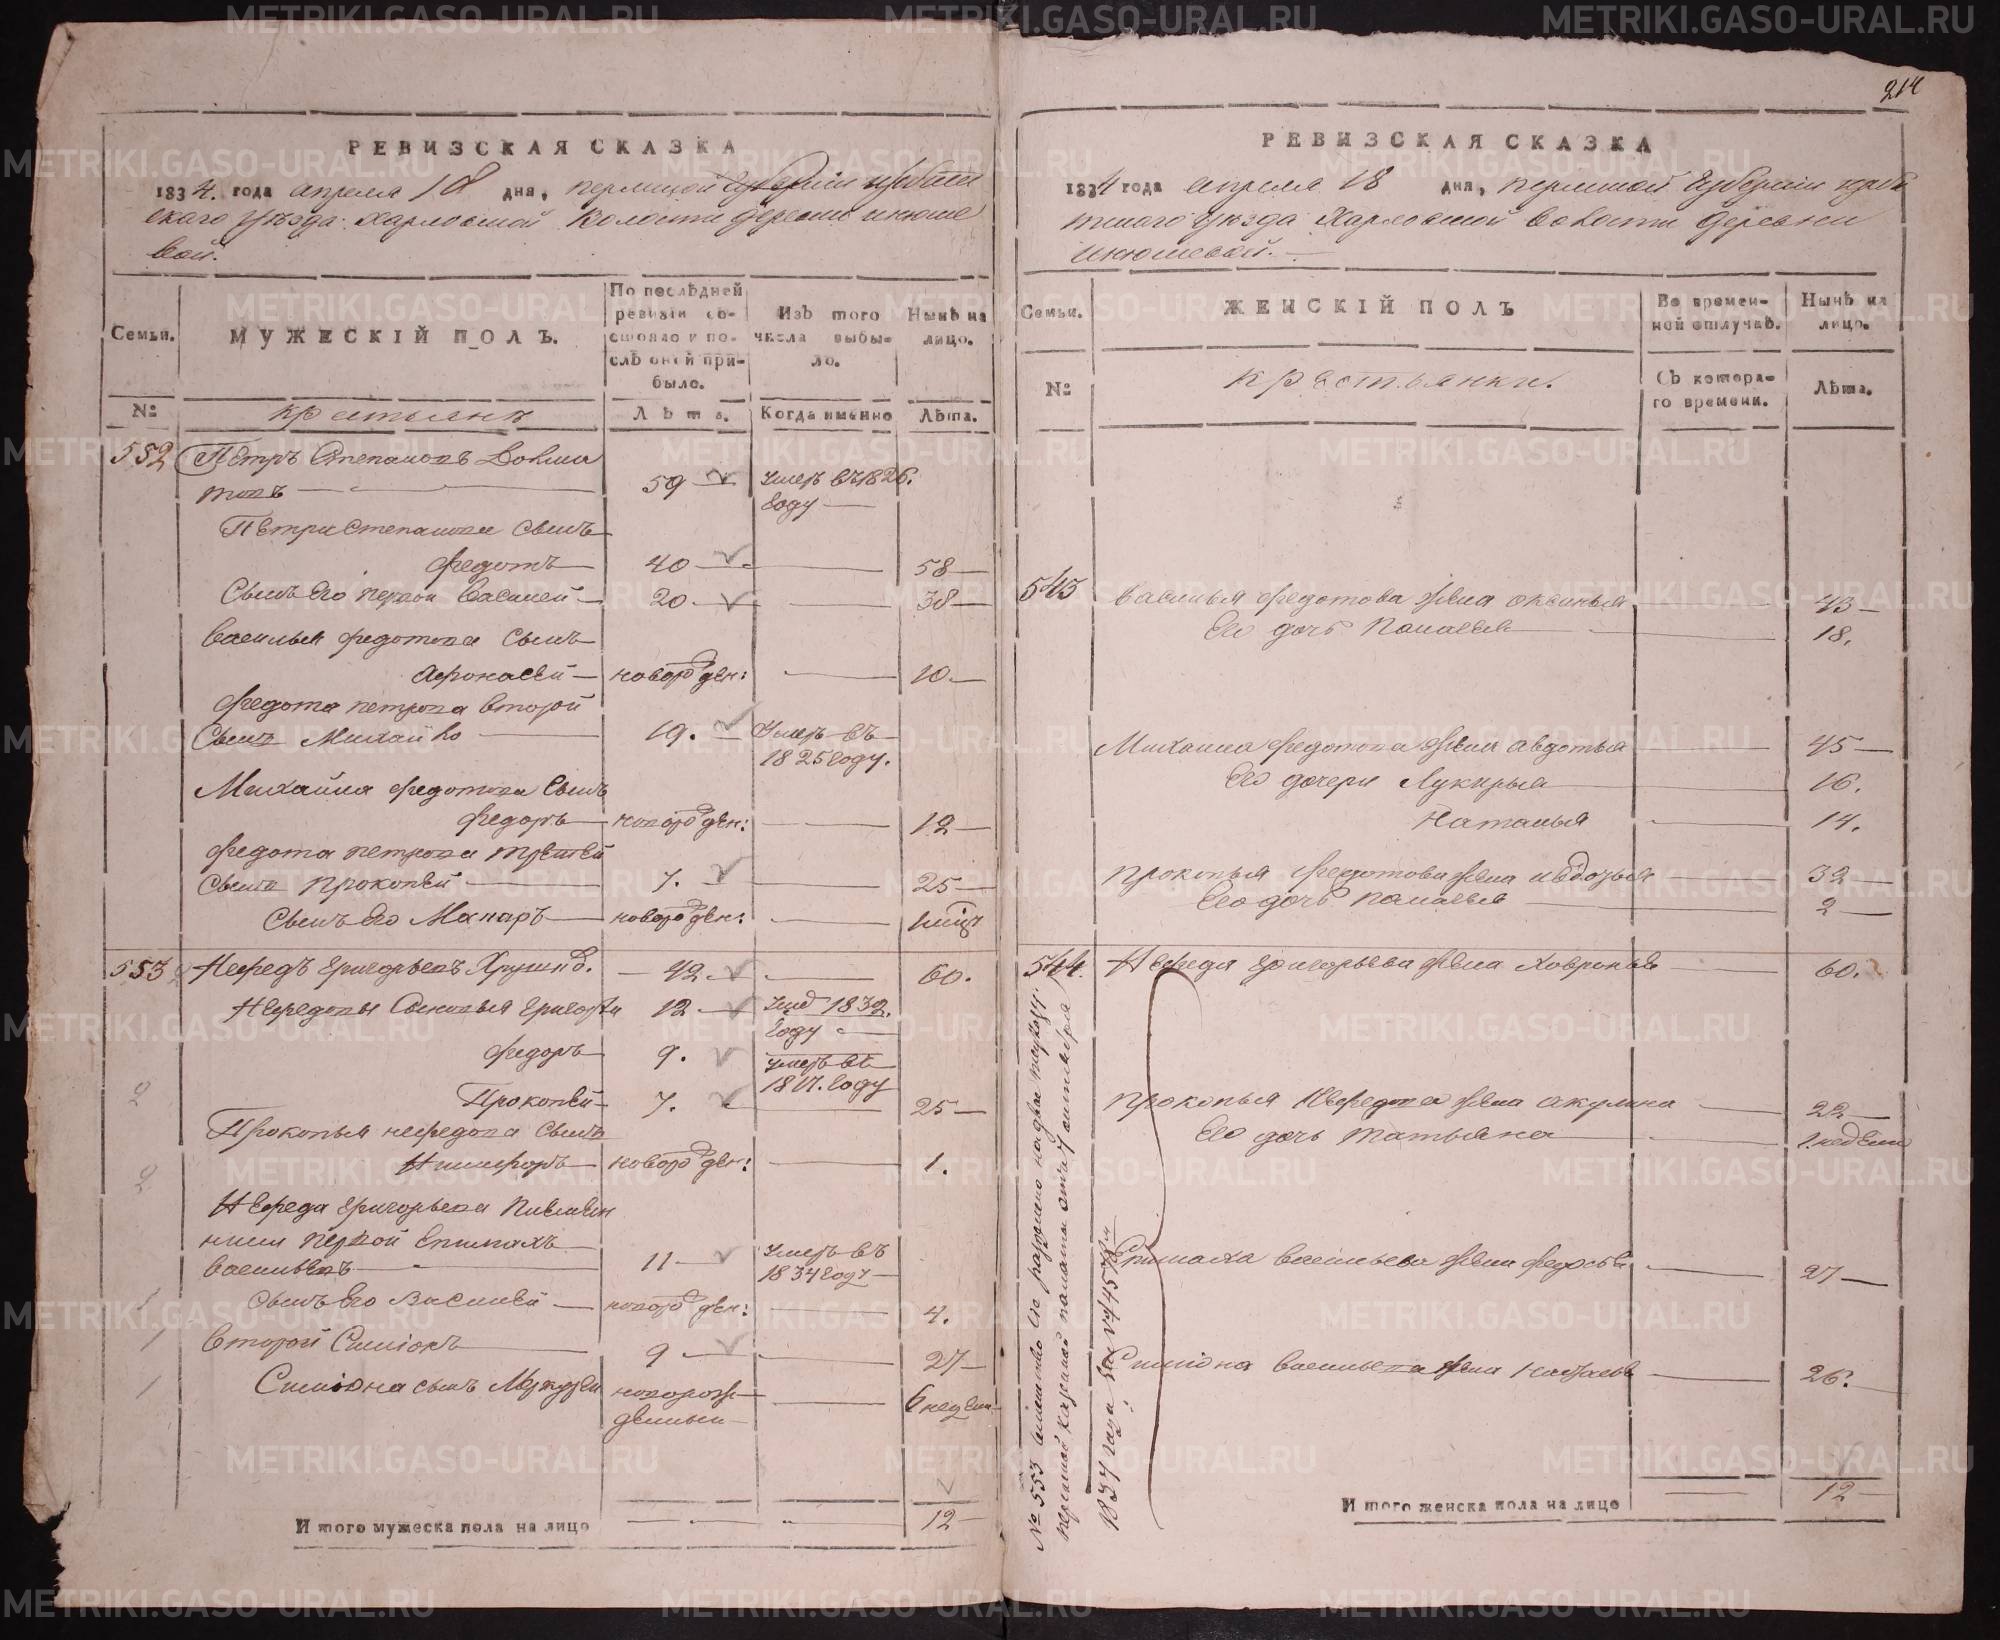 214
РЕВИЗСКАЯ СКАЗКА
1834. года апреля 18 дня, пермской губерніи ирбит
скаго уѣзда харловской волости деревни икюше
вой.
Семьи.
МУЖЕСКІЙ ПОЛЪ.
По послѣдней
ревизіи со-
стояло и по-
слѣ оной при-
было.
Изъ того
числа выбы-
ло.
Нынѣ на
лицо.
№
крестьянъ
Лѣта.
Когда именно
Лѣта.
552 Петръ Степановъ
59 умеръ въ 1826.
году
Петра Степанова сынъ
федотъ 40 58
Сынъ его первой Василей 20 38
Василья федотова сынъ
новорожден: 10
федота петрова второй
Сынъ Михайло 19. умеръ въ
1825 году.
Михайла федотова сынъ
федоръ новорожден: 12
федота петрова третей
сынъ прокопей 7. 25
Сынъ его Макаръ новорожден:
553 Нефедъ григорьевъ 42 60.
Нефедовы Сыновья григорей 12 1832.
году
федоръ 9. умеръ въ
18 году
Прокопей 7. 25
Прокопья нефедова сынъ
новорожден: 1.
Нефеда григорьева племян
ники первой епимахъ
васильевъ 11 умеръ въ
1834 году
Сынъ его Василей новорожден: 4.
второй Симіонъ 9 27
Симіона сынъ новорож
денный 6 недель
2
2
1
1
1
Итого мужеска пола на лицо 12
РЕВИЗСКАЯ СКАЗКА
1834 года апреля 18 дня, пермской губерніи ирби
тскаго уѣзда Харловской волости деревни
икюшевой.
Семьи.
ЖЕНСКІЙ ПОЛЪ
Во времен-
ной отлучкѣ.
Нынѣ на
лицо.
№
крестьянки.
Съ котора-
го времени.
Лѣта.
543 василья федотова жена оксинья 43
его дочь Паналья 18.
Михайла федотова жена авдотья 45
его дочери Лукирья 16.
Наталья 14.
прокопья федотова жена 32
его дочь 2
544. Нефеда григорьева жена ховронья 60.
прокопья Нефедова жена акулина 22
его дочь татьяна 1 недели
Епимаха васильева жена федосья 27
Симіона васильева жена 26.
№ 553 семейство его разделено на двое по указу
пермской казенной палаты отъ 7 сентября
1837 года за № 1457
Итого женска пола на лицо 12
METRIKI.GASO-URAL.RU